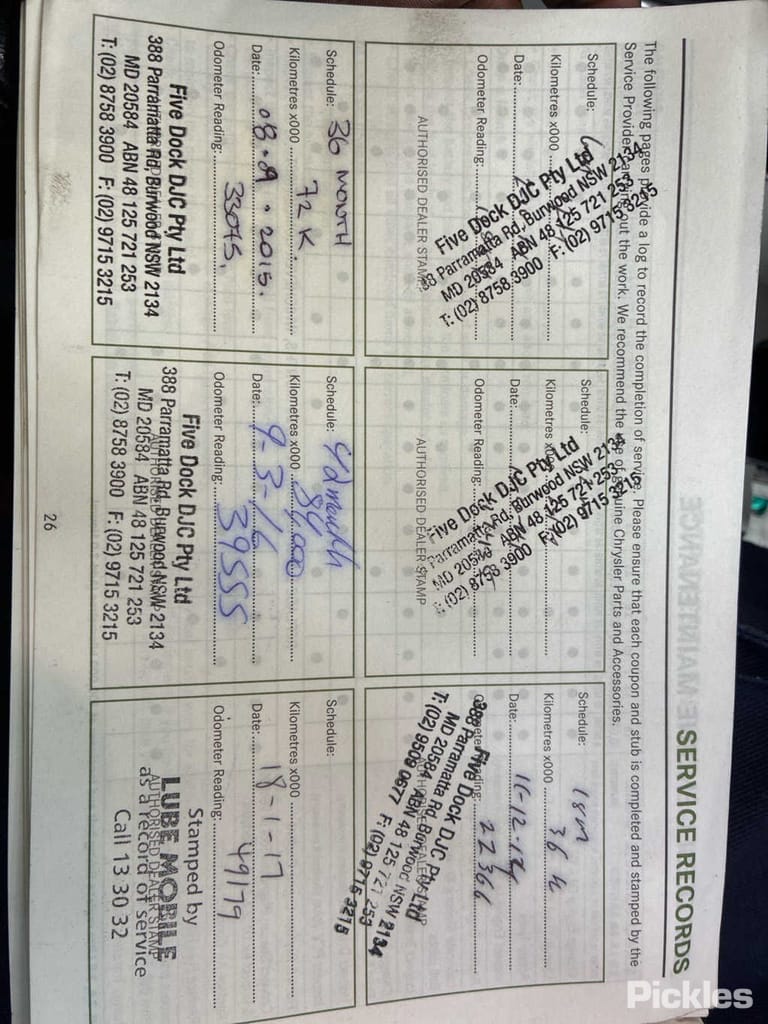 SERVICE RECORDS
The following pages provide a log to record the completion of service. Please ensure that each coupon and stub is completed and stamped by the
Service Provider carrying out the work. We recommend the use of genuine Chrysler Parts and Accessories.
Schedule:
Kilometres x000
Date:
Odometer Reading:
AUTHORISED DEALER STAMP
Five Dock DJC Pty Ltd
388 Parramatta Rd, Burwood NSW 2134
MD 20584 ABN 48 125 721 253
T: (02) 8758 3900 F: (02) 9715 3215
Schedule:
Kilometres x000
Date:
Odometer Reading:
AUTHORISED DEALER STAMP
Five Dock DJC Pty Ltd
Parramatta Rd, Burwood NSW 2134
MD 20584 ABN 48 125 721 253
T: (02) 8758 3900 F: (02) 9715 3215
Schedule: 18m
Kilometres x000 36 K
Date: 11-12-14
Odometer Reading: 22366
AUTHORISED DEALER STAMP
Five Dock DJC Pty Ltd
388 Parramatta Rd, Burwood NSW 2134
MD 20584 ABN 48 125 721 253
T: (02) 9509 0677 F: (02) 9715 3215
Schedule: 36 MONTH
Kilometres x000 72 K.
Date: 08.09.2015.
Odometer Reading: 33045.
AUTHORISED DEALER STAMP
Five Dock DJC Pty Ltd
388 Parramatta Rd, Burwood NSW 2134
MD 20584 ABN 48 125 721 253
T: (02) 8758 3900 F: (02) 9715 3215
Schedule: 42 month
Kilometres x000 84,000
Date: 9-3-16
Odometer Reading: 39555
AUTHORISED DEALER STAMP
Five Dock DJC Pty Ltd
388 Parramatta Rd, Burwood NSW 2134
MD 20584 ABN 48 125 721 253
T: (02) 8758 3900 F: (02) 9715 3215
Schedule:
Kilometres x000
Date: 18-1-17
Odometer Reading: 49179
AUTHORISED DEALER STAMP
Stamped by
LUBE MOBILE
as a record of service
Call 13 30 32
26
Pickles